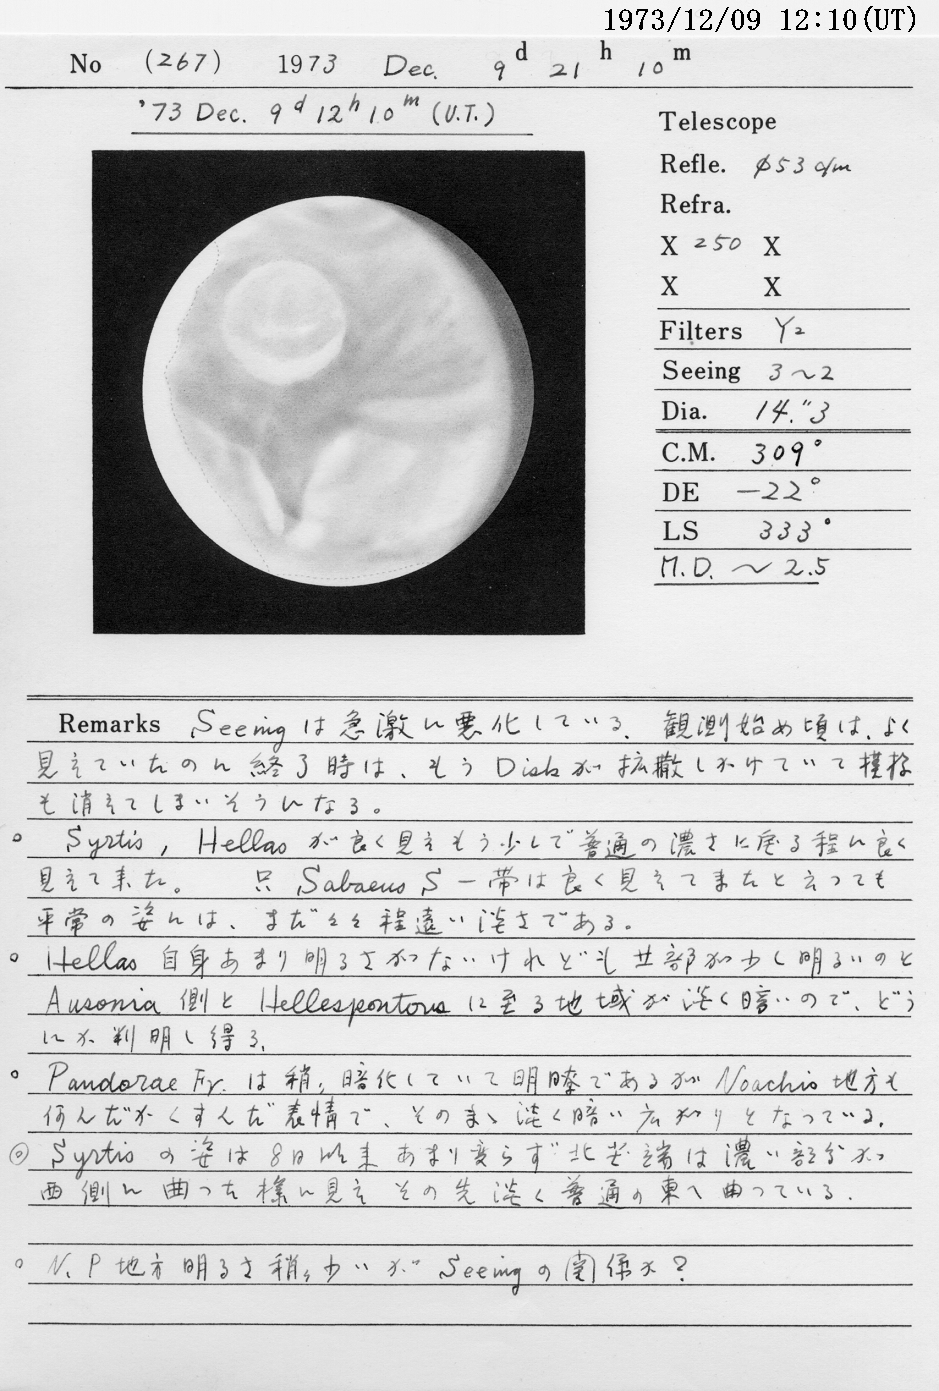 1973/12/09 12:10(UT)
No (267) 1973 Dec. 9 d 21 h 10 m
'73 Dec. 9 d 12 h 10 m (U.T.)
Telescope
Refle. φ53 c/m
Refra.
X 250 X
X X
Filters Y2
Seeing 3~2
Dia. 14."3
C.M. 309°
DE -22°
LS 333°
M.D. ~ 2.5
Remarks Seeingは急激に悪化している。観測始め頃は、よく
見えていたのに終了時は、もうDiskが拡散しかけていて模様
も消えてしまいそうになる。
○ Syrtis, Hellasが良く見えもう少しで普通の濃さに戻る程に良く
見えて来た。 只Sabaeus S一帯は良く見えてきたと云っても
平常の姿には、まだまだ程遠い淡さである。
○ Hellas自身あまり明るさがないけれども 部が少く明るいのと
Ausonia側とHellespontusに至る地域が淡く暗いので、どう
にか判明し得る。
○ Pandorae Fr.は稍々暗化していて明瞭であるがNoachis地方も
何んだかくすんだ表情で、そのまゝ淡く暗い広がりとなっている。
◎ Syrtisの姿は8日以来あまり変らず北 端は濃い部分が
西側に曲った様に見えその先淡く普通の東へ曲っている。
○ N.P地方明るさ稍々少いがSeeingの関係か?